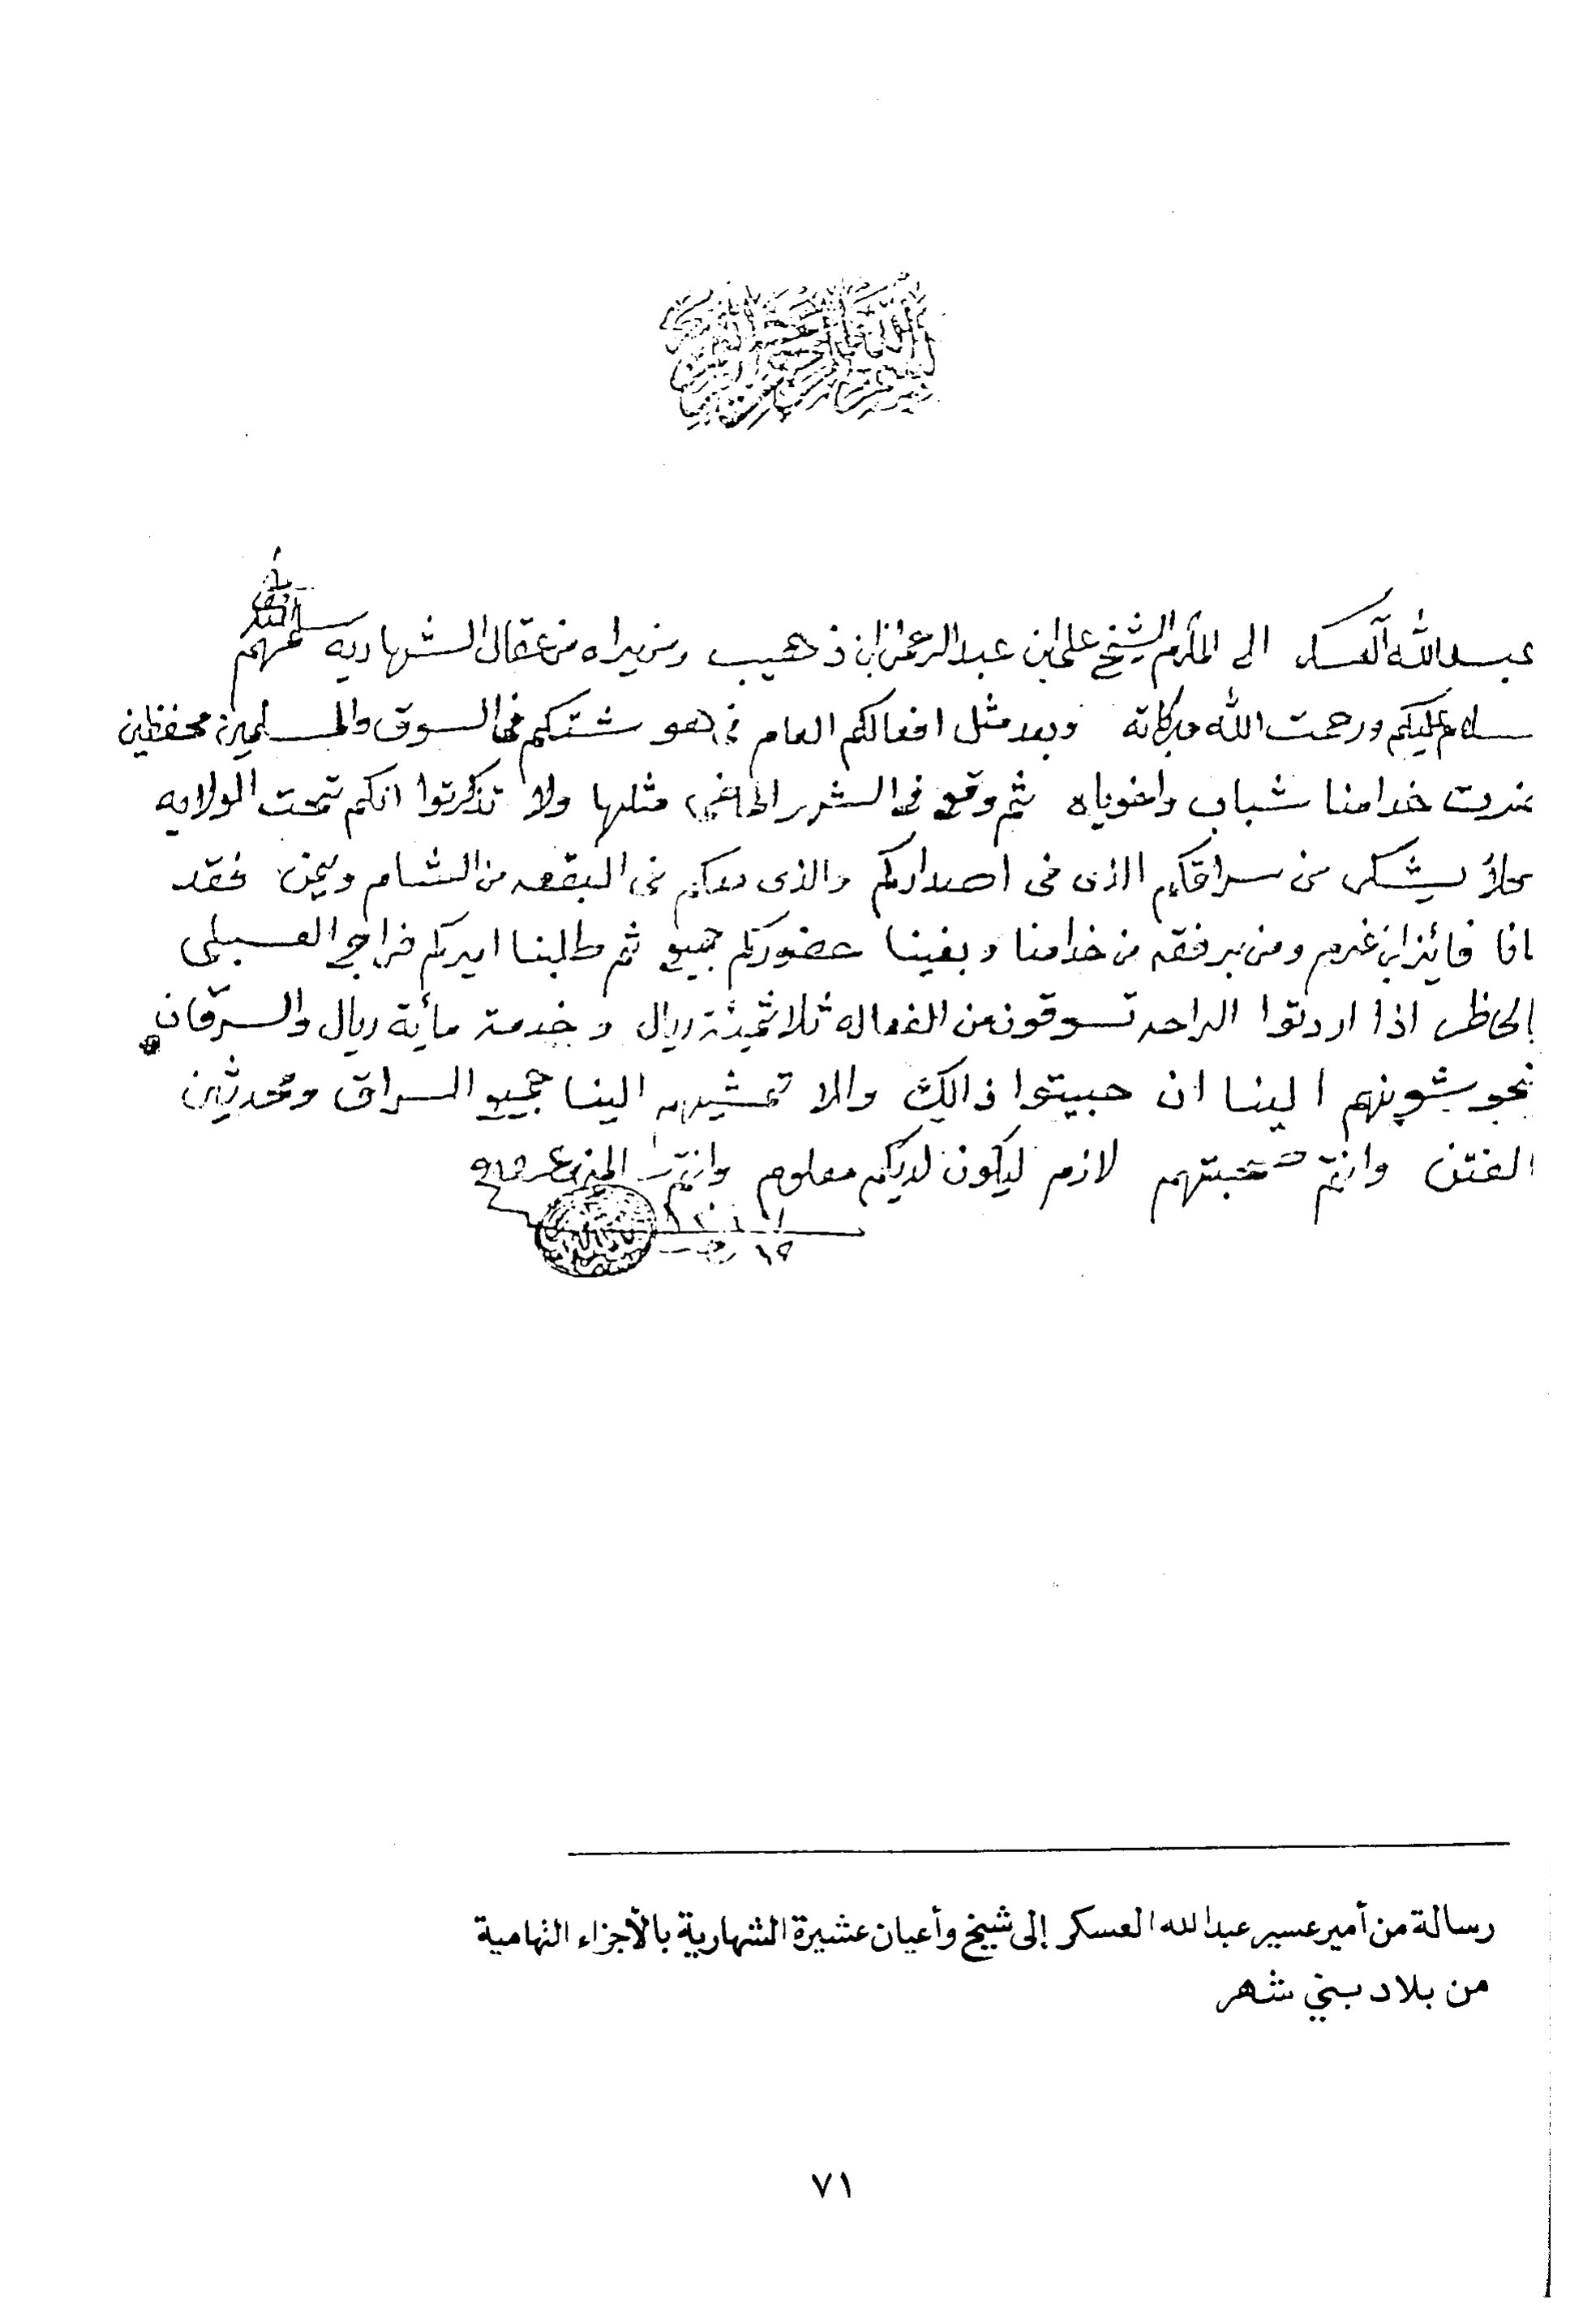 عبدالله العسكر الى المكرم الشيخ على ابن عبدالرحمن ابن ذهيب ومن يراه من عقال الشهاريه سلمهم الله
سلام عليكم ورحمت الله وبركاته وبعد مثل افعالكم العام في هو شتكم في السوق والمسلمين محفظين
خدامنا شباب واخوياه ثم وقع في الشهر الماضي مثلها ولا تذكرتوا انكم تحت الولايه
يشكى من سراقكم الذى في اصداركم والذى معكم في البقعه من الشام ويمن فقد
انا فائز ابن غرم ومن برفقه من خدامنا وبغينا حضوركم جميع ثم طلبنا اميركم فراج العسبلى
الحاظر اذا اردتوا الراحه تسوقون من الفعاله ثلاثمئة ريال وخدمة مأية ريال والسرقان
تحوشونهم الينا ان حبيتوا ذالك والا تمشيهم الينا جميع السراق ومحدثين
الفتن وانتم صحبتهم لازم ليكون لديكم معلوم وانتم
رسالة من أمير عسير عبدالله العسكر إلى شيخ وأعيان عشيرة الشهارية بالأجزاء التهامية
من بلاد بني شهر
٧١